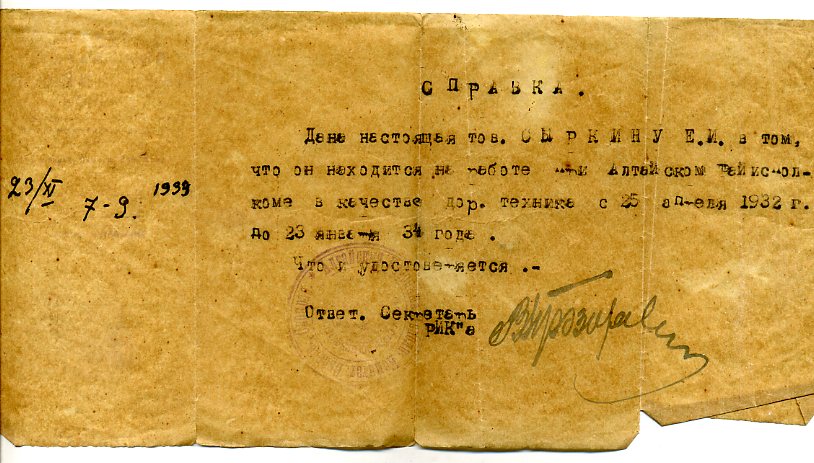 СПРАВКА.
Дана настоящая тов. СЫРКИНУ Е.И. в том,
что он находится на работе при Алтайском райиспол-
коме в качестве дор. техника с 25 апреля 1932 г.
до 23 января 34 года.
Что и удостоверяется.-
Ответ. Секретарь
РИК"а
23/XI
7-9. 1933